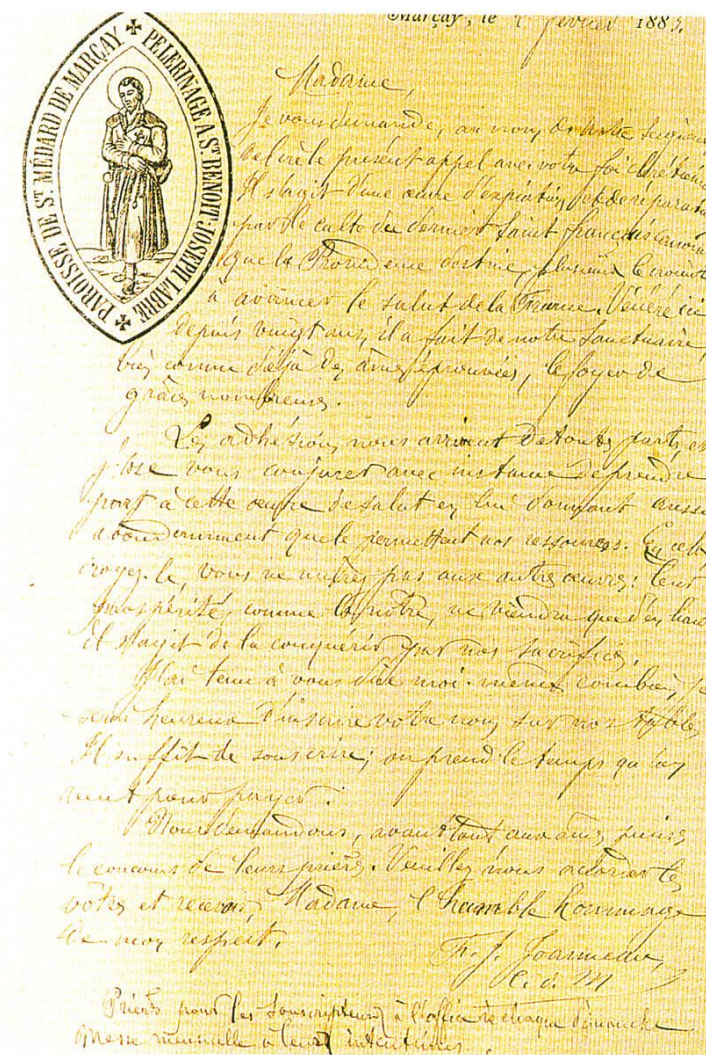 Marçay, le 2 février 1883.
PAROISSE DE ST MÉDARD DE MARÇAY ✠ PÈLERINAGE A ST BENOIT-JOSEPH LABRE ✠
Madame,
Je vous demande, au nom de Notre Seigneur
le présent appel avec votre foi chrétienne
Il s'agit d'une œuvre d'expiation et de réparation
par le culte du dernier Saint français
que la Providence destine, plusieurs le croient
à avancer le salut de la France. Vénéré ici
depuis vingt ans, il a fait de notre Sanctuaire,
bien connu déjà des âmes éprouvées, le foyer de
grâces nombreuses.
Les adhésions nous arrivent de toutes parts, et
j'ose vous conjurer avec instance de prendre
part à cette œuvre de salut en lui donnant aussi
abondamment que le permettent vos ressources. En cela,
croyez-le, vous ne nuirez pas aux autres œuvres: leur
prospérité, comme la nôtre, ne viendra que d'en haut
Il s'agit de la conquérir par nos sacrifices.
J'ai tenu à vous dire moi-même combien je
serai heureux d'inscrire votre nom sur nos tables
Il suffit de souscrire; on prend le temps qu'on
veut pour payer.
Nous demandons, avant tout aux âmes pieuses
le concours de leurs prières. Veuillez nous accorder les
vôtres et recevoir, Madame, l'humble hommage
de mon respect.
F. J. Joanneau,
c. d. M
Prières pour les Souscripteurs à l'office de chaque dimanche
Messe mensuelle à leurs intentions.